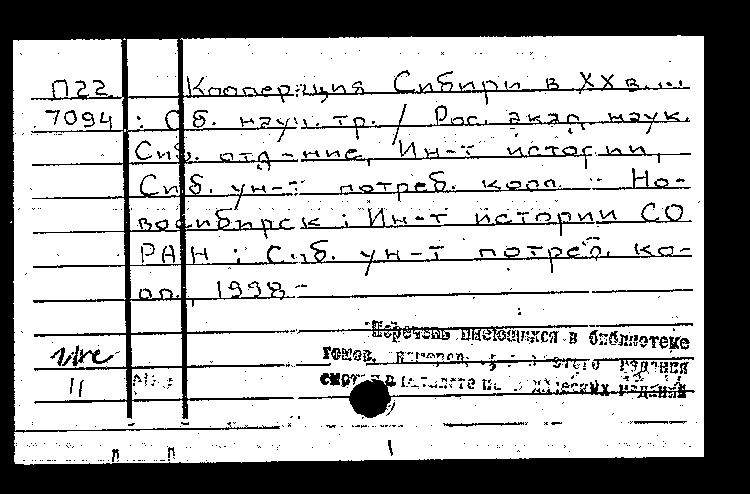 П22 Кооперация Сибири в XX в. ...
7094 : Сб. науч. тр. / Рос. акад. наук.
Сиб. отд-ние, Ин-т истории,
Сиб. ун-т потреб. кооп. - Но-
восибирск : Ин-т истории СО
РАН : Сиб. ун-т потреб. ко-
оп., 1998 -
Перечень имеющихся в библиотеке
томов, этого издания
11